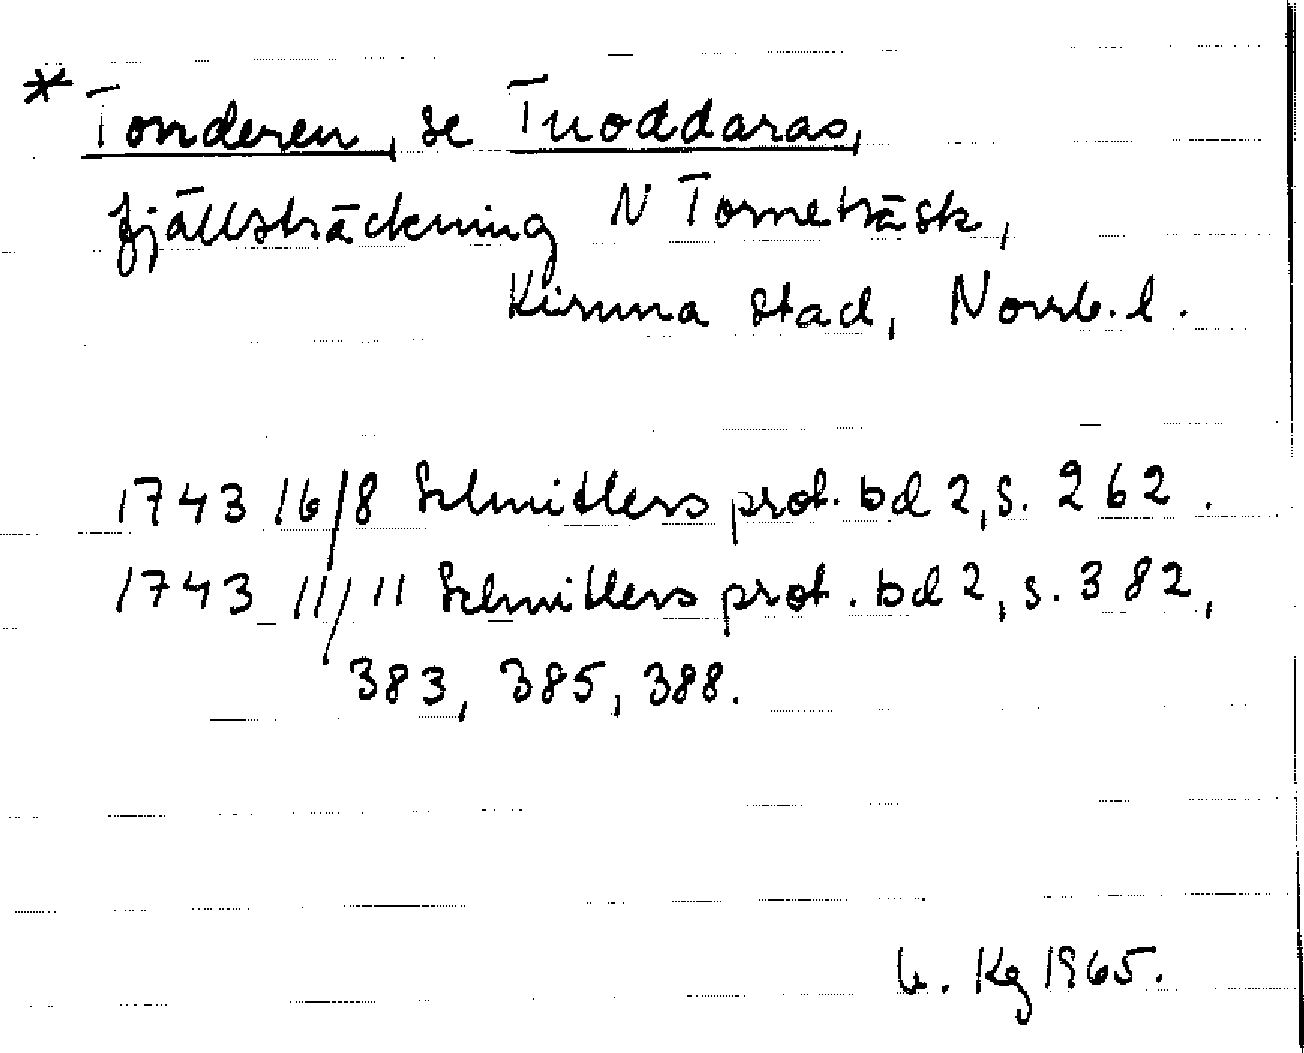 * Tonderen, se Tuoddaras,
fjällsträckning N Torneträsk,
Kiruna stad, Norrb. l.
1743 16/8 Schnitlers prot. bd 2, s. 262.
1743 11/11 Schnitlers prot. bd 2, s. 382,
383, 385, 388.
Kg 1965.